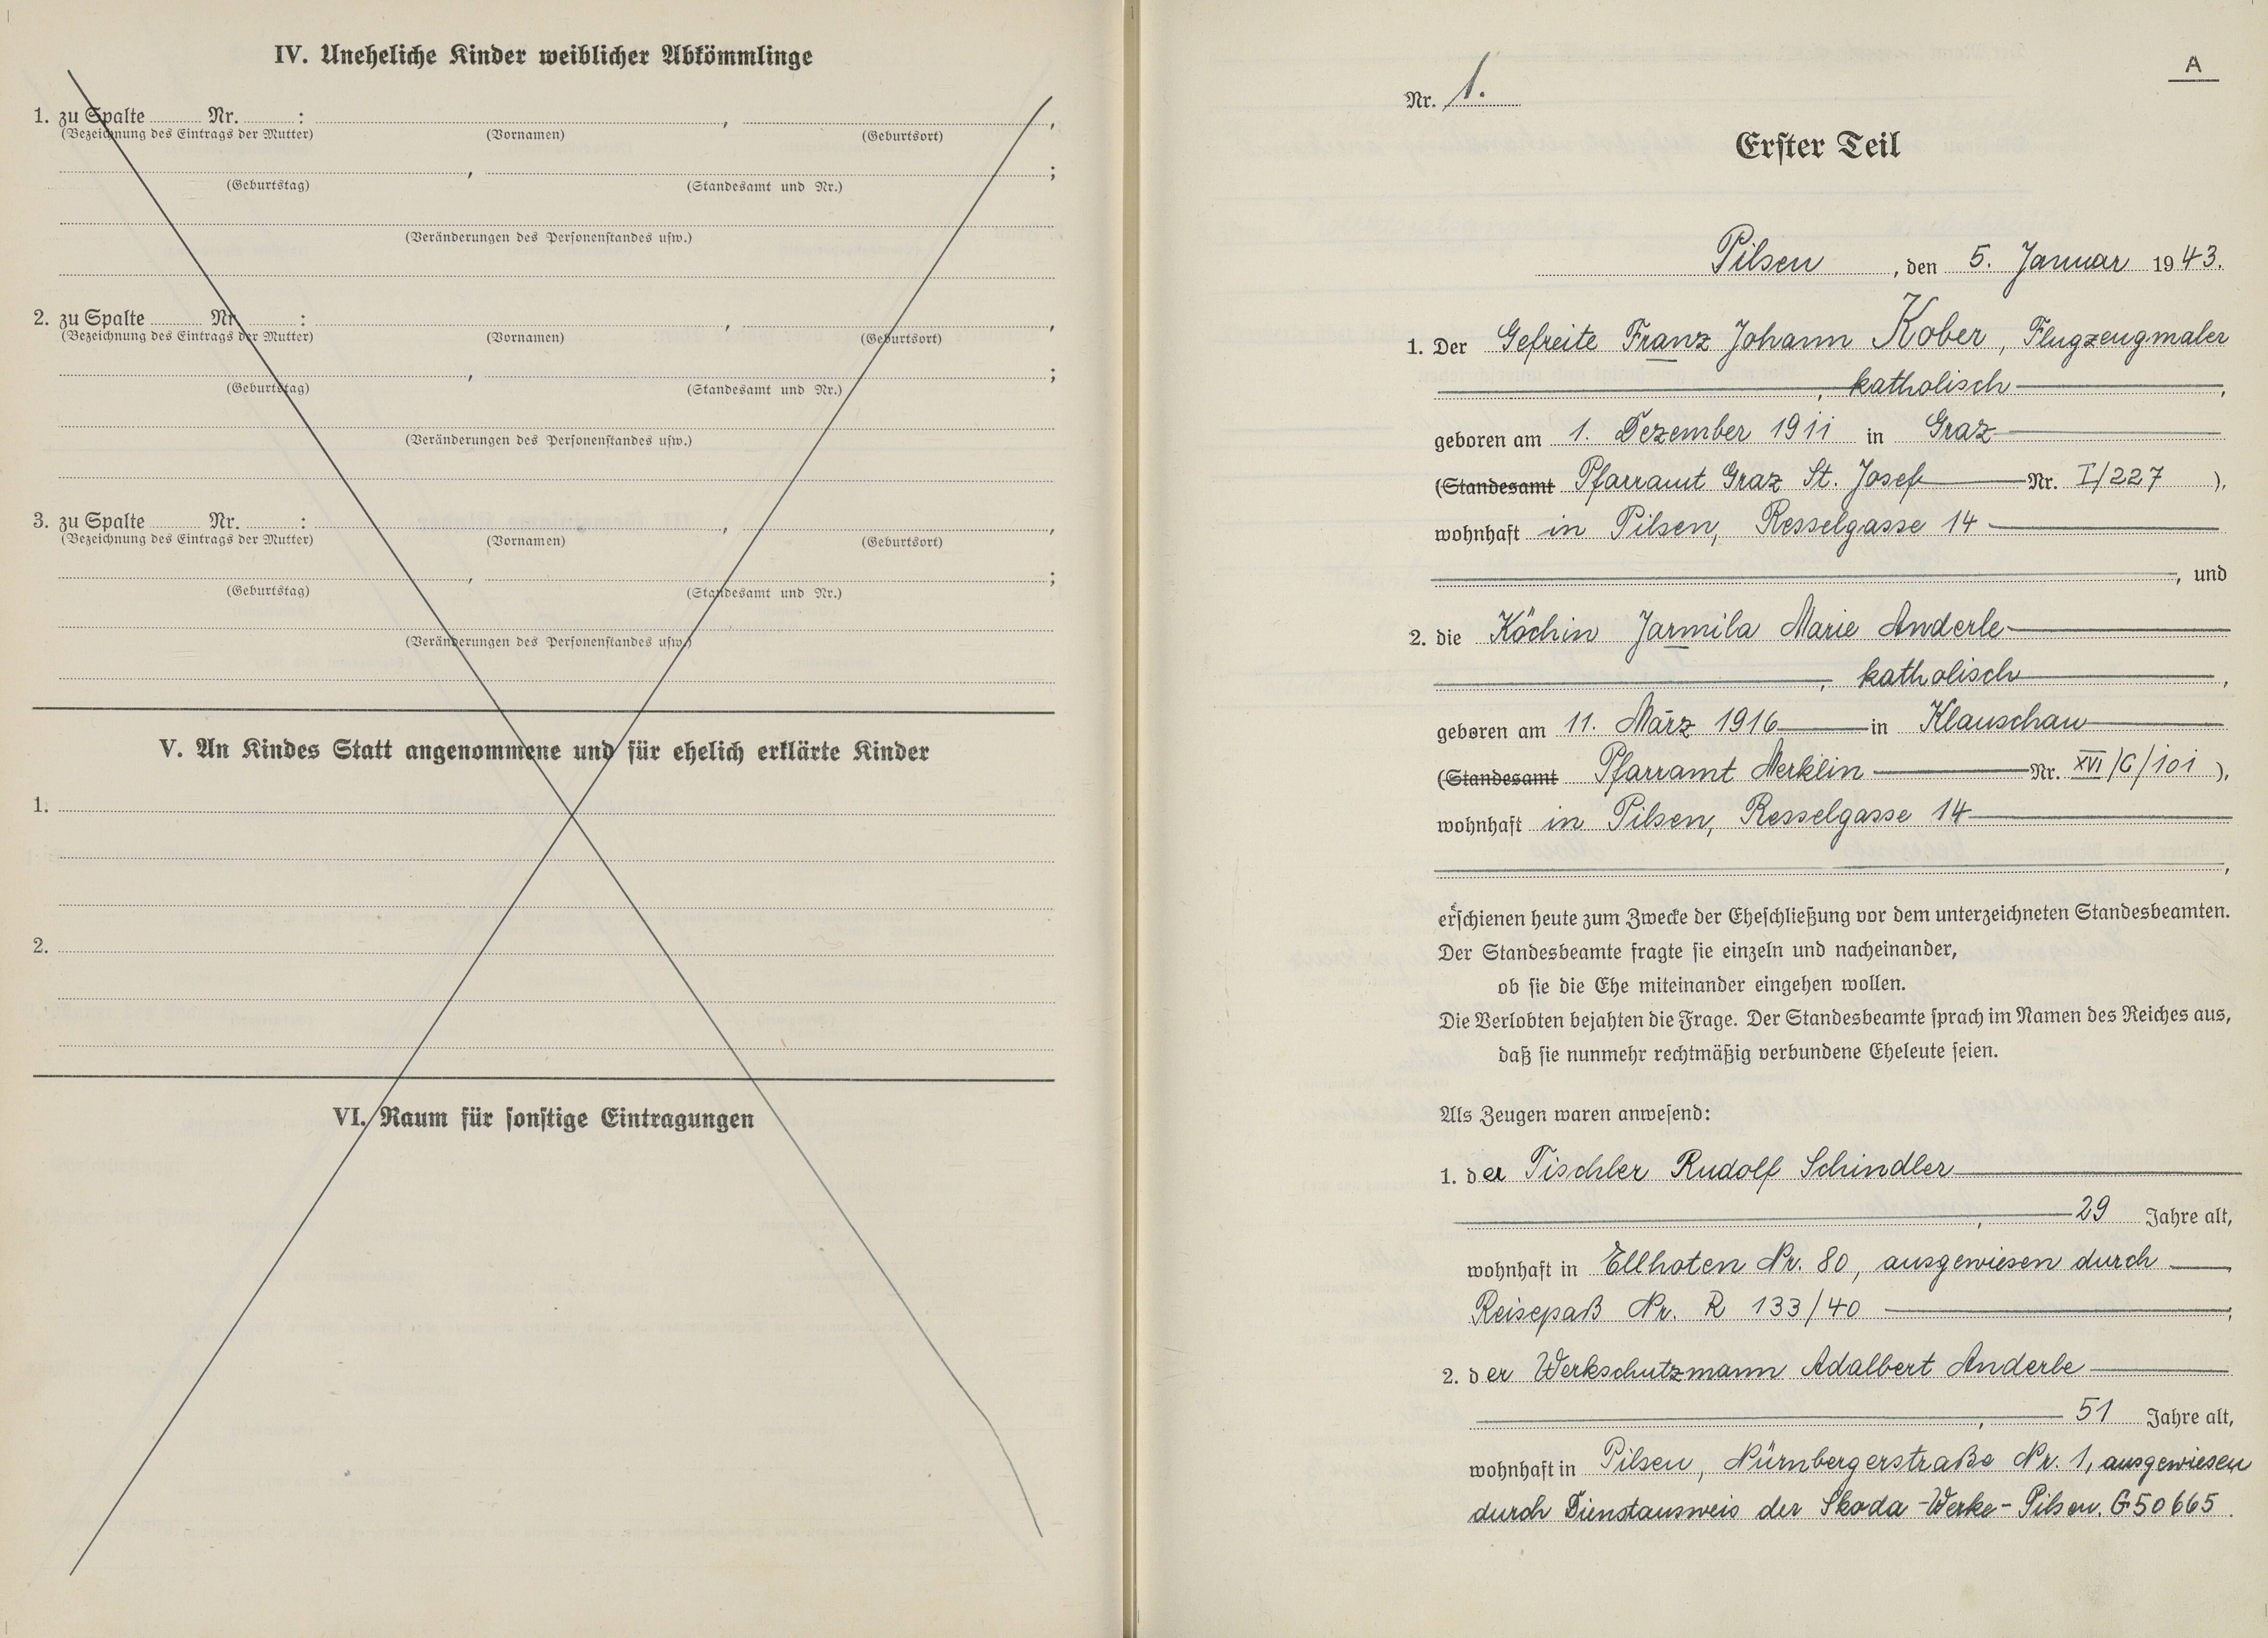 IV. Uneheliche Kinder weiblicher Abkömmlinge
1. zu Spalte ........ Nr. ........ : ........ , ........ ,
(Bezeichnung des Eintrags der Mutter) (Vornamen) (Geburtsort)
........ , ........ ;
(Geburtstag) (Standesamt und Nr.)
(Veränderungen des Personenstandes usw.)
2. zu Spalte ........ Nr. ........ : ........ , ........ ,
(Bezeichnung des Eintrags der Mutter) (Vornamen) (Geburtsort)
........ , ........ ;
(Geburtstag) (Standesamt und Nr.)
(Veränderungen des Personenstandes usw.)
3. zu Spalte ........ Nr. ........ : ........ , ........ ,
(Bezeichnung des Eintrags der Mutter) (Vornamen) (Geburtsort)
........ , ........ ;
(Geburtstag) (Standesamt und Nr.)
(Veränderungen des Personenstandes usw.)
V. An Kindes Statt angenommene und für ehelich erklärte Kinder
1.
2.
VI. Raum für sonstige Eintragungen
A
Nr. 1.
Erster Teil
Pilsen, den 5. Januar 1943.
1. Der Gefreite Franz Johann Kober, Flugzeugmaler
, katholisch ,
geboren am 1. Dezember 1911 in Graz
(Standesamt Pfarramt Graz St. Josef Nr. I/227 ),
wohnhaft in Pilsen, Resselgasse 14
, und
2. die Köchin Jarmila Marie Anderle
, katholisch ,
geboren am 11. März 1916 in Klauschau
(Standesamt Pfarramt Merklin Nr. XVI/C/101 ),
wohnhaft in Pilsen, Resselgasse 14
,
erschienen heute zum Zwecke der Eheschließung vor dem unterzeichneten Standesbeamten.
Der Standesbeamte fragte sie einzeln und nacheinander,
ob sie die Ehe miteinander eingehen wollen.
Die Verlobten bejahten die Frage. Der Standesbeamte sprach im Namen des Reiches aus,
daß sie nunmehr rechtmäßig verbundene Eheleute seien.
Als Zeugen waren anwesend:
1. der Tischler Rudolf Schindler
, 29 Jahre alt,
wohnhaft in Ellhoten Nr. 80, ausgewiesen durch
Reisepaß Nr. R 133/40 ;
2. der Werkschutzmann Adalbert Anderle
, 51 Jahre alt,
wohnhaft in Pilsen, Nürnbergerstraße Nr. 1, ausgewiesen
durch Dienstausweis der Skoda-Werke-Pilsen. G50665.